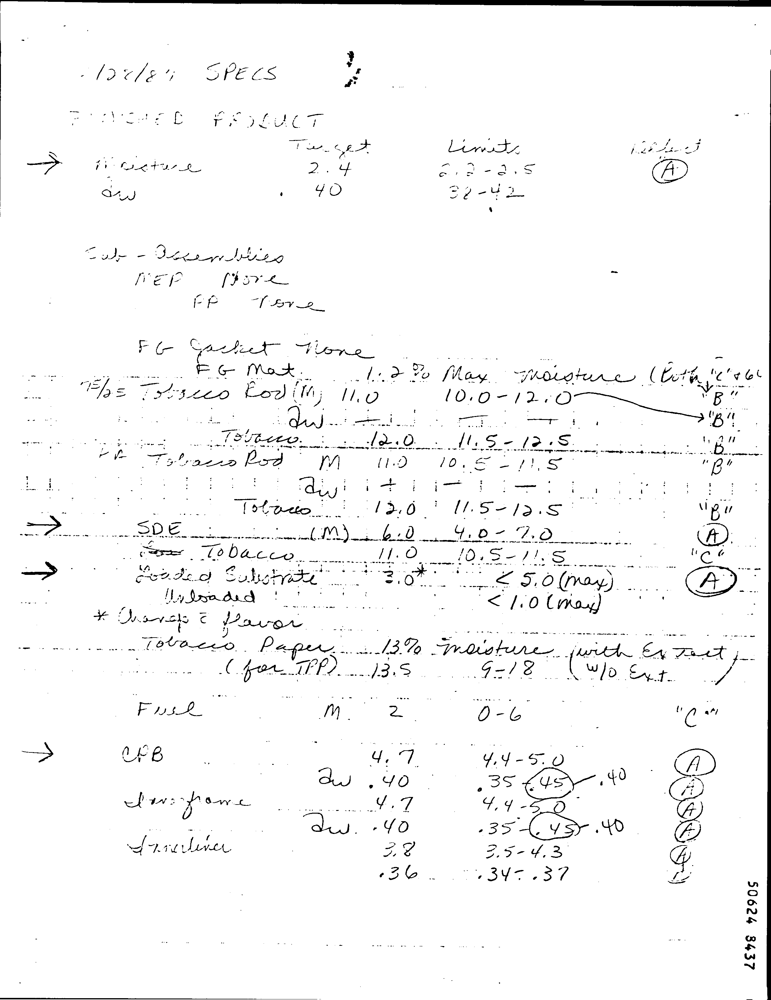 SPECS
FINISHED PRODUCT
Target Limits
→ Moisture 2.4 2.2-2.5 A
aw . 40 38-42
Sub-Assemblies
MEP None
FP None
FG Jacket None
FG Mat. 1.2% Max moisture (Both "C"
Tobacco Rod (M) 11.0 10.0-12.0 "B"
aw — — "B"
Tobacco 12.0 11.5-12.5 "B"
Tobacco Rod M 11.0 10.5-11.5 "B"
aw
Tobacco 12.0 11.5-12.5 "B"
→ SDE (M) 6.0 4.0-7.0 A
Tobacco 11.0 10.5-11.5 "C"
→ Loaded Substrate 3.0* < 5.0 (max) A
Unloaded < 1.0 (max)
* Change c̄ flavor
Tobacco Paper 13% moisture (with Extract,
(for TPP) 13.5 9-18 w/o Ext.
Fuel M 2 0-6 "C"
→ CPB 4.7 4.4-5.0 A
aw .40 .35-.45 .40 A
4.7 4.4-5.0 A
aw .40 .35-.45 .40 A
Innerliner 3.8 3.5-4.3 A
.36 .34-.37
50624 8437